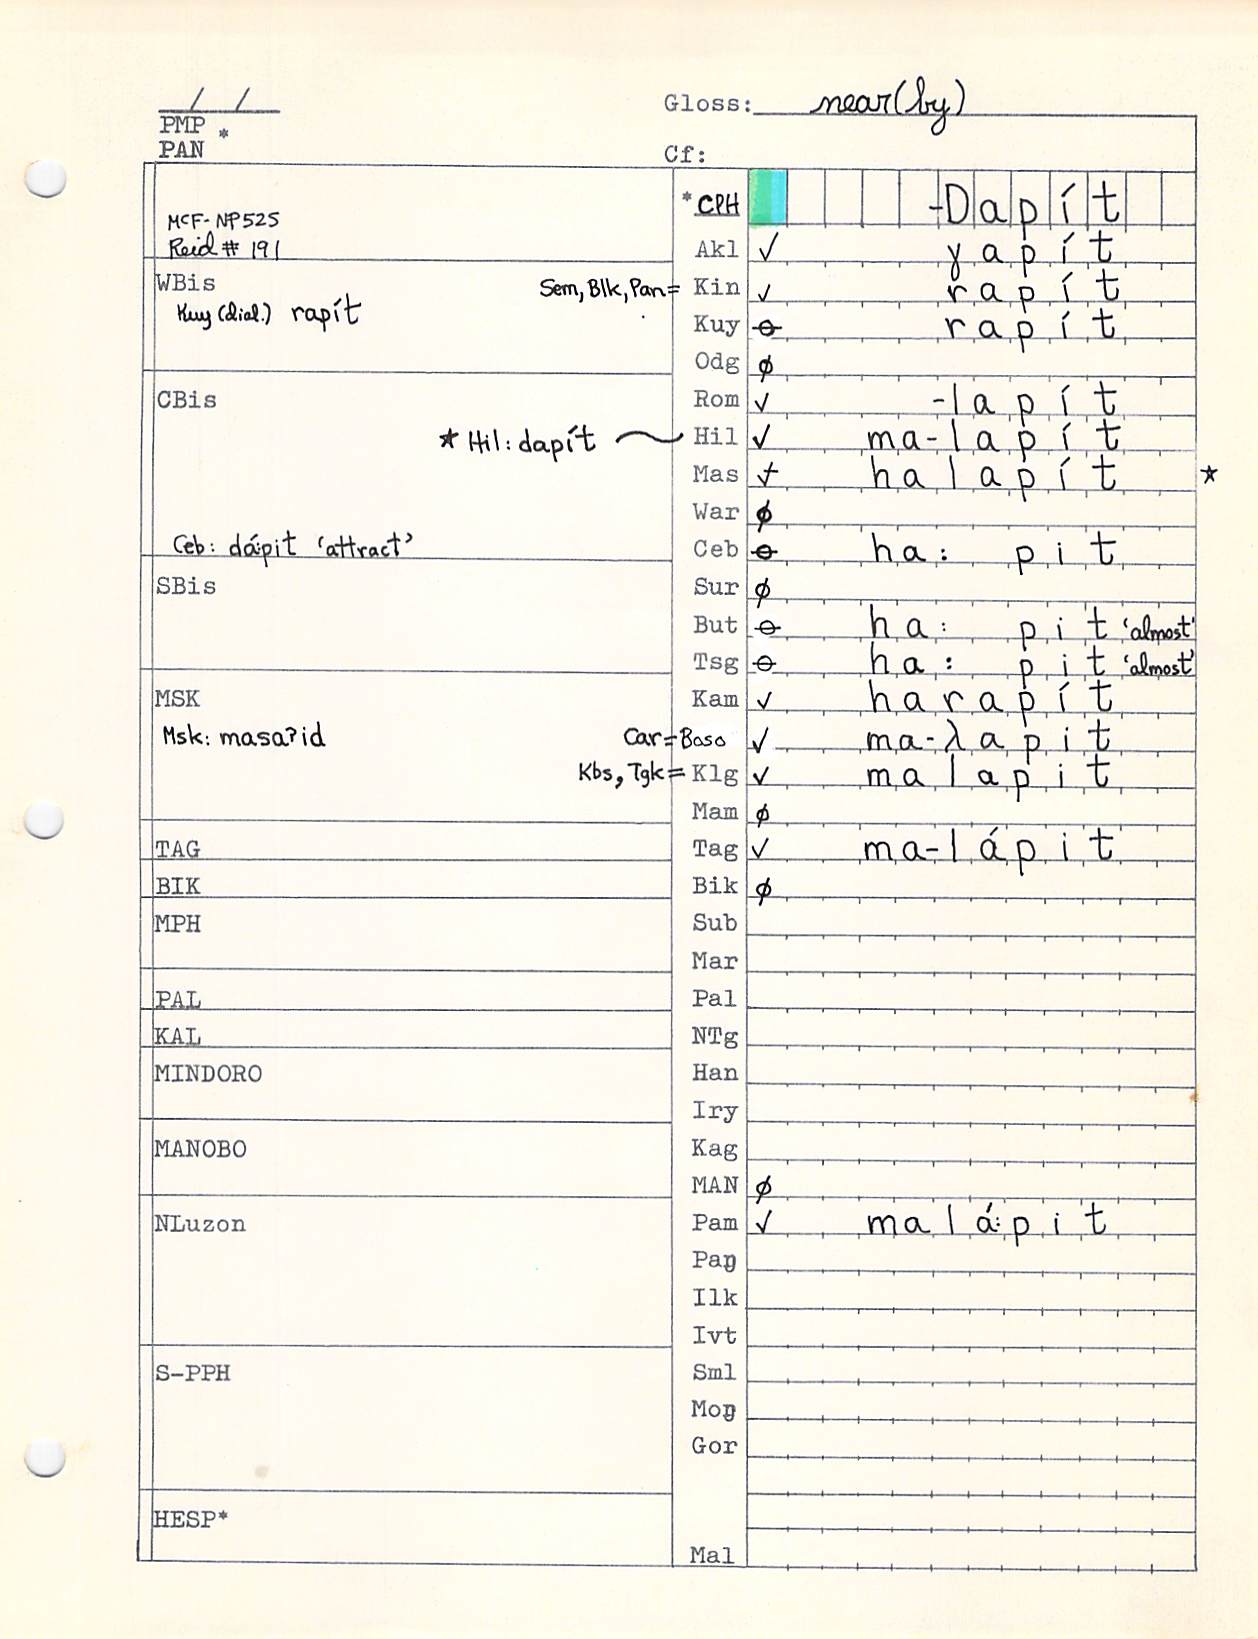 / /
Gloss: near(by)
PMP *
PAN
Cf:
McF-NP525
Reid # 191
*CPH -Dapít
Akl ✓ ɣapít
WBis
Sem, Blk, Pan= Kin ✓ rapít
Kuy (dial.) rapít
Kuy ⊖ rapít
Odg ∅
CBis
Rom ✓ -lapít
★ Hil: dapít Hil ✓ ma-lapít
Mas ✓ halapít ★
War ∅
Ceb: dá:pit ‘attract’
Ceb ⊖ ha: pit
SBis
Sur ∅
But ⊖ ha: pit ‘almost’
Tsg ⊖ ha: pit ‘almost’
MSK
Kam ✓ harapít
Msk: masaʔid
Car=Baso ✓ ma-λapit
Kbs, Tgk= Klg ✓ malapit
Mam ∅
TAG
Tag ✓ ma-lápit
BIK
Bik ∅
MPH
Sub
Mar
PAL
Pal
KAL
NTg
MINDORO
Han
Iry
MANOBO
Kag
MAN ∅
NLuzon
Pam ✓ malá:pit
Paŋ
Ilk
Ivt
S-PPH
Sml
Moŋ
Gor
HESP*
Mal